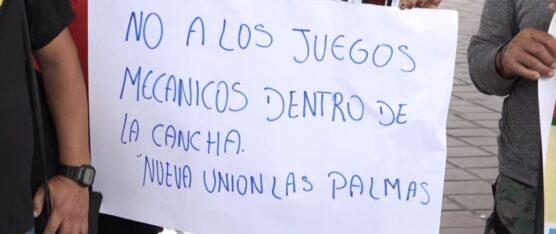 NO A LOS JUEGOS
MECANICOS DENTRO DE
LA CANCHA.
"NUEVA UNION LAS PALMAS